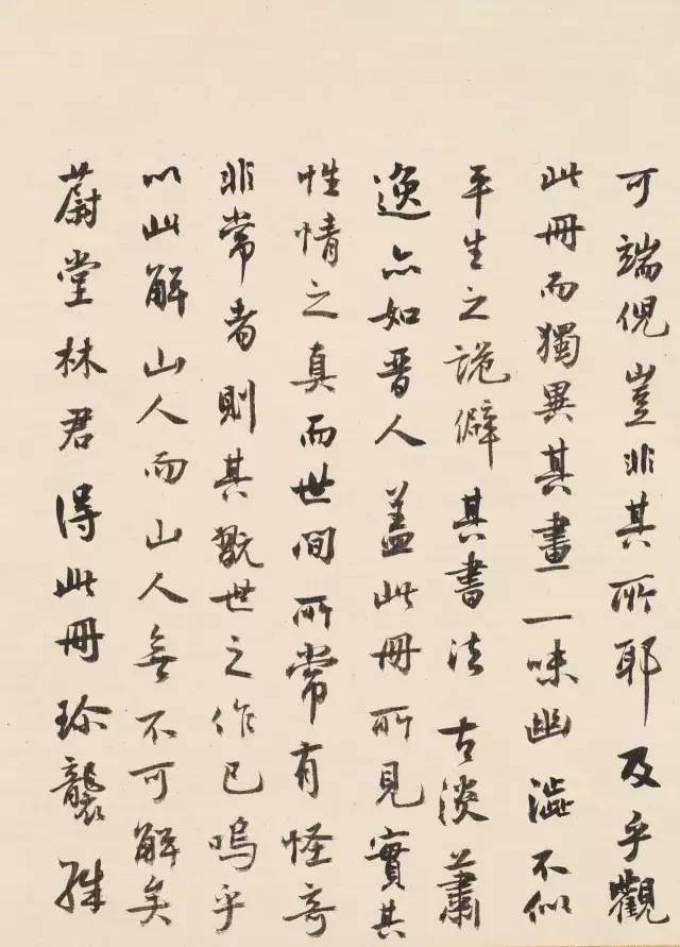 可端倪豈非其所耶及乎觀
此冊而獨異其畫一味幽澁不似
平生之詭僻其書法古淡蕭
逸亦如晉人蓋此冊所見實其
性情之真而世間所常有怪奇
非常者則其翫世之作已嗚乎
以此解山人而山人無不可解矣
蔚堂林君得此冊珍襲殊